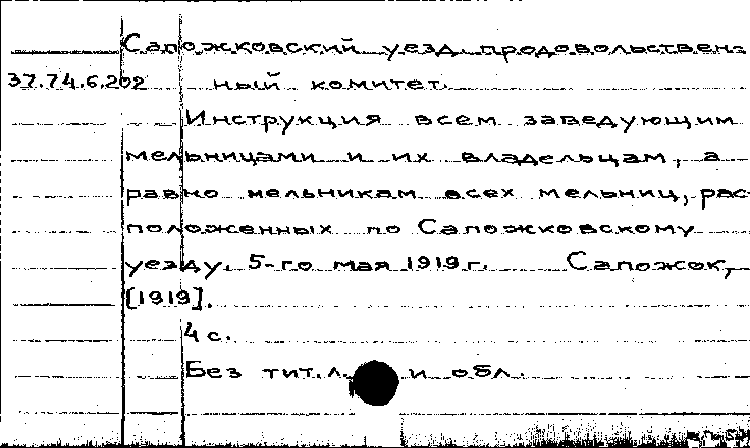 Сапожковский уезд. продовольствен-
37.74.6.202 ный комитет.
Инструкция всем заведующим
мельницами и их владельцам, а
равно мельникам всех мельниц, рас-
положенных по Сапожковскому
уезду. 5-го мая 1919 г. Сапожок,
[1919].
4 с.
Без тит. л. и обл.